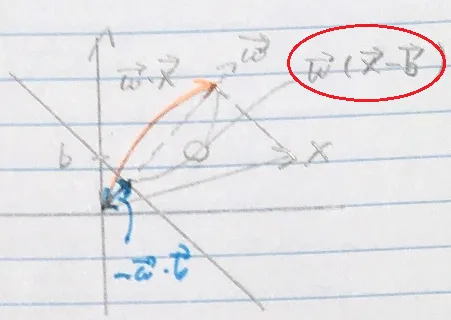 w⃗
w⃗·x⃗
w⃗(x⃗-b⃗
b
x
-w⃗·b⃗